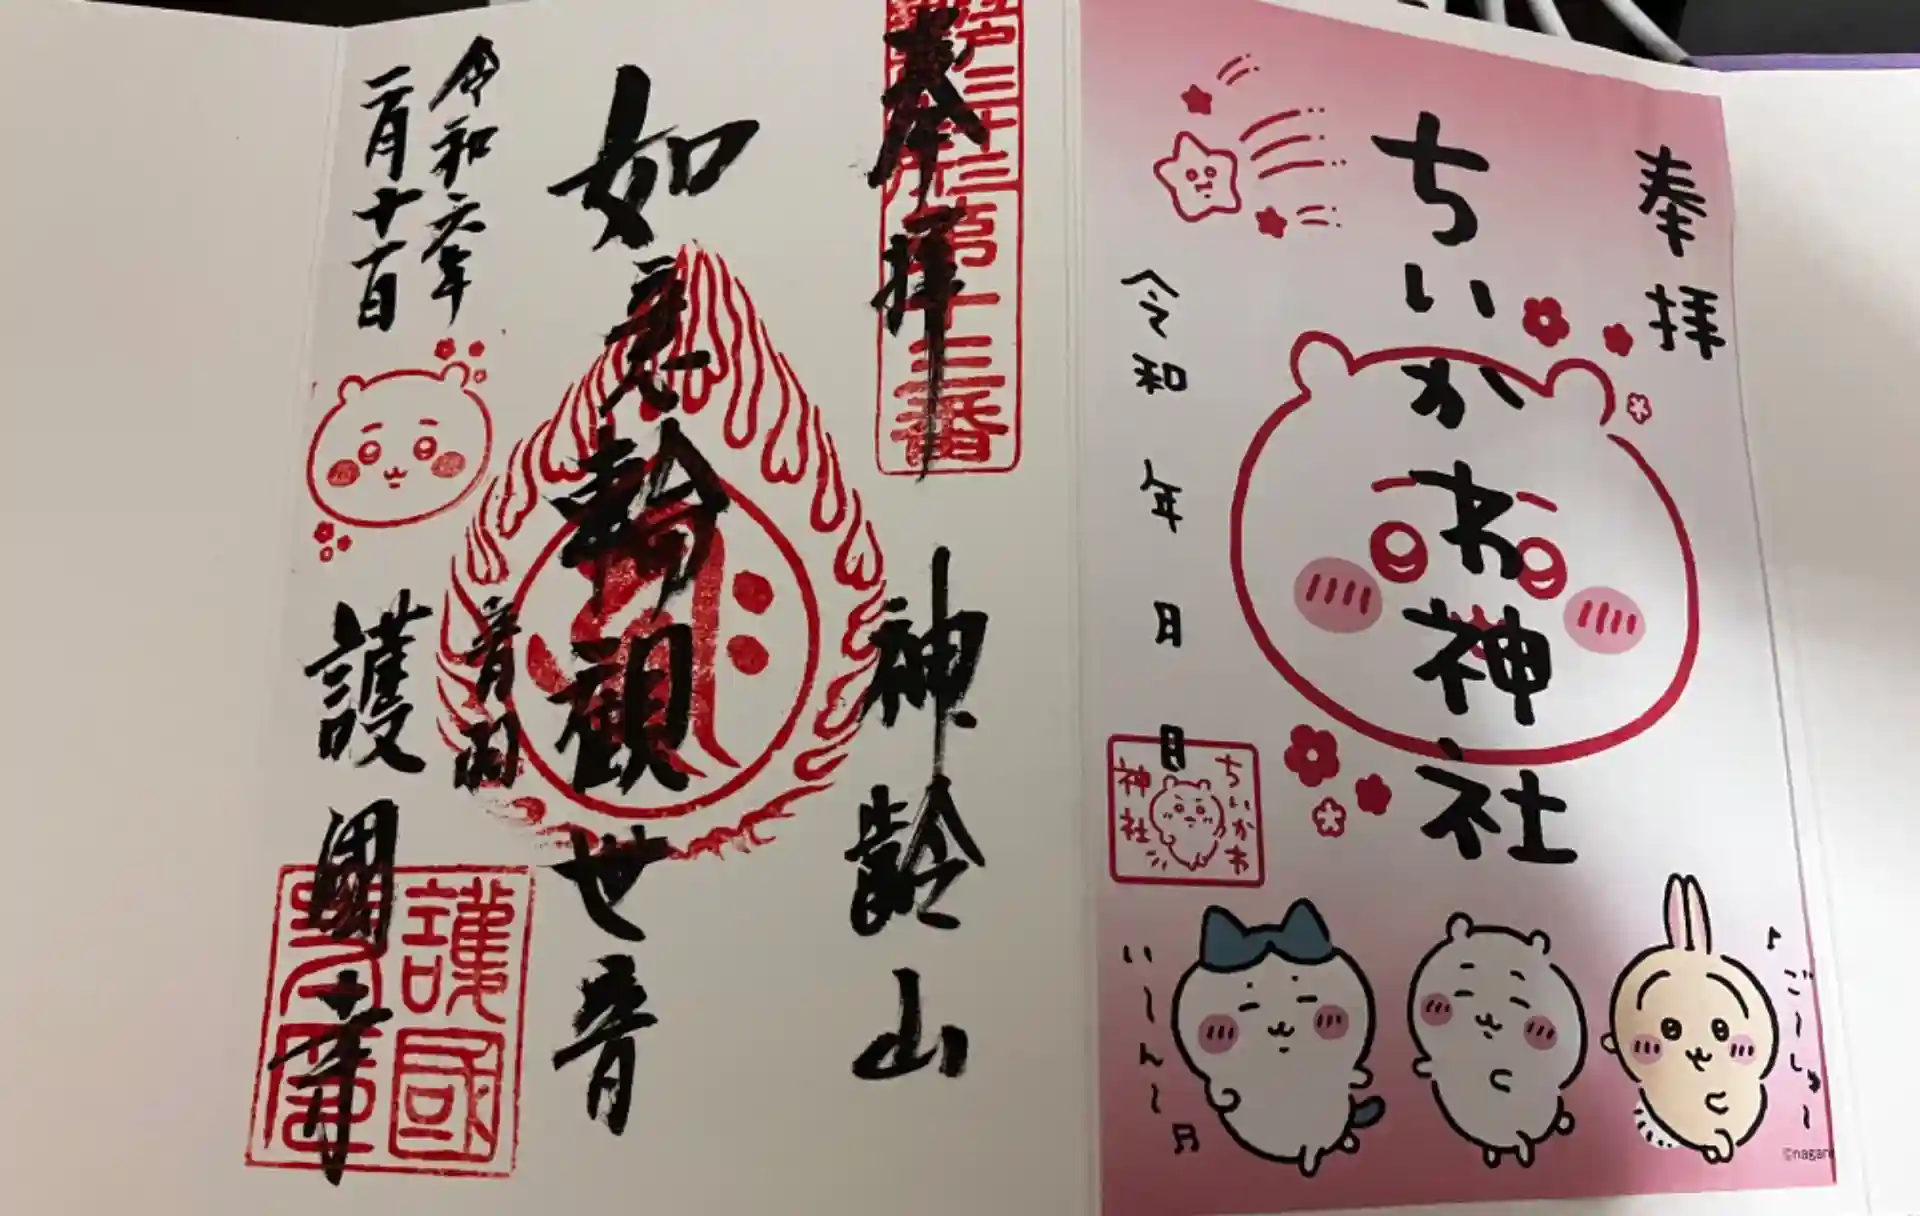 奉拝
ちいかわ神社
令和 年 月 日
ちいかわ
神社
い〜ん〜
ご〜しゅ〜
©nagan
江戸三十三
第十三番
奉拝
神齢山
如意輪観世音
音羽
護國寺
護國
令和六年
二月十一日